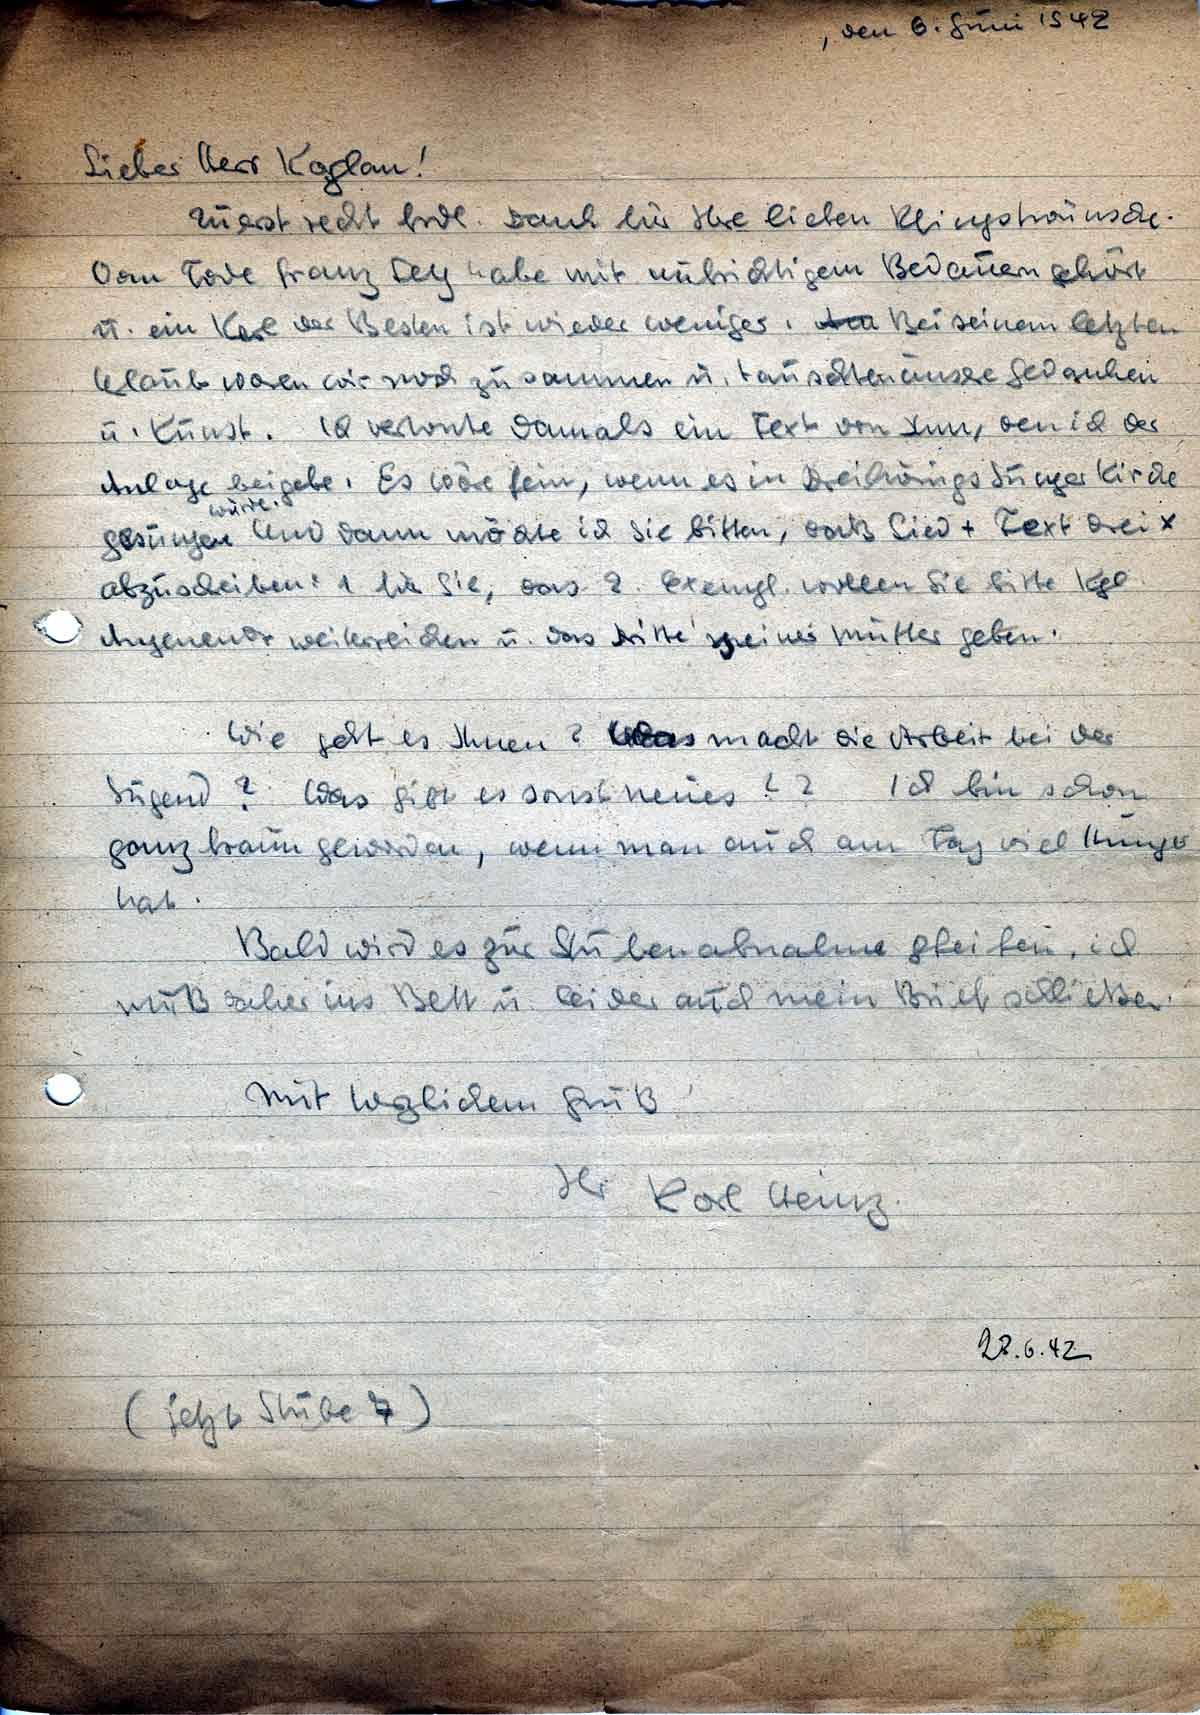 , den 6. Juni 1942
Lieber Herr Kaplan!
Zuerst recht herzl. Dank für Ihre lieben Pfingstwünsche.
Vom Tode Franz habe mit aufrichtigem Bedauern gehört
u. ein Kerl der Besten ist wieder weniger. Bei seinem letzten
Urlaub waren wir noch zusammen u. tauschten unsre Gedanken
u. Kunst. Ich vertonte damals ein Text von Ihm, den ich der
Anlage beigebe. Es wäre fein, wenn es in Dreikönigs Junger Kirche
gesungen würde. Und dann möchte ich Sie bitten, daß Lied + Text drei x
abzuschreiben: 1 für Sie, das 2. Exempl. wollen Sie bitte
Angenendt weiterreichen u. das dritte meiner Mutter geben.
Wie geht es Ihnen? Was macht die Arbeit bei der
Jugend? Was gibt es sonst neues?? Ich bin schon
ganz braun geworden, wenn man auch am Tag viel Hunger
hat.
Bald wird es zur Stubenabnahme pfeifen, ich
muß daher ins Bett u. leider auch mein Brief schließen.
Mit herzlichem Gruß!
Ihr Karl Heinz.
28.6.42
(jetzt Stube 7)